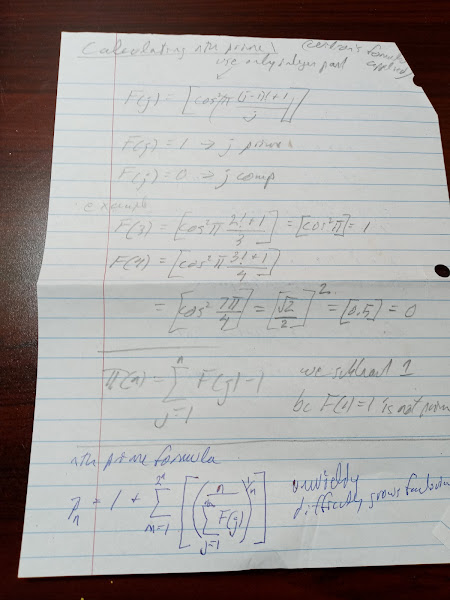 Calculating nth prime \ (Wilson's formula applied)
use only integer part
F(j) = [cos²π ((j-1)!+1)/j]
F(j) = 1 → j prime
F(j) = 0 → j comp
example
F(3) = [cos²π (2!+1)/3] = [cos²π] = 1
F(4) = [cos²π (3!+1)/4]
= [cos² 7π/4] = [√2/2]² = [0.5] = 0
π(n) = Σ_{j=1}^{n} F(j) - 1 we subtract 1
bc F(1)=1 is not prime
nth prime formula
p_n = 1 + Σ_{m=1}^{2^n} [(n / Σ_{j=1}^{m} F(j))^{1/n}] unwieldy
difficulty grows